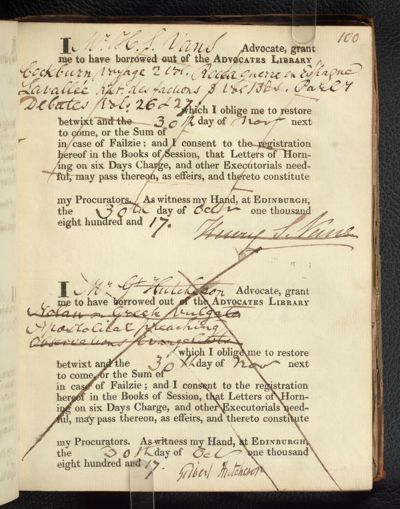 100
I Mr. H. S. Vans Advocate, grant
me to have borrowed out of the ADVOCATES LIBRARY
Cockburn, Voyage 2 vol. guerre en Espagne
Lavallée hist. des factions 3 vol.
Debates Vol. 26 & 27.
which I oblige me to restore
betwixt and the 30th day of Novr next
to come, or the Sum of
in case of Failzie; and I consent to the registration
hereof in the Books of Session, that Letters of Horn-
ing on six Days Charge, and other Executorials need-
ful, may pass thereon, as effeirs, and thereto constitute
my Procurators. As witness my Hand, at EDINBURGH,
the 30th day of Octr one thousand
eight hundred and 17.
Henry S. Vans
I Mr. Gt. Hutcheson Advocate, grant
me to have borrowed out of the ADVOCATES LIBRARY
Nolan on Greek Vulgate
Apostolical preaching
Observations Evangelists
which I oblige me to restore
betwixt and the 30th day of Nov next
to come, or the Sum of
in case of Failzie; and I consent to the registration
hereof in the Books of Session, that Letters of Horn-
ing on six Days Charge, and other Executorials need-
ful, may pass thereon, as effeirs, and thereto constitute
my Procurators. As witness my Hand, at EDINBURGH,
the 30th day of Oct one thousand
eight hundred and 17.
Gilbert Hutcheson